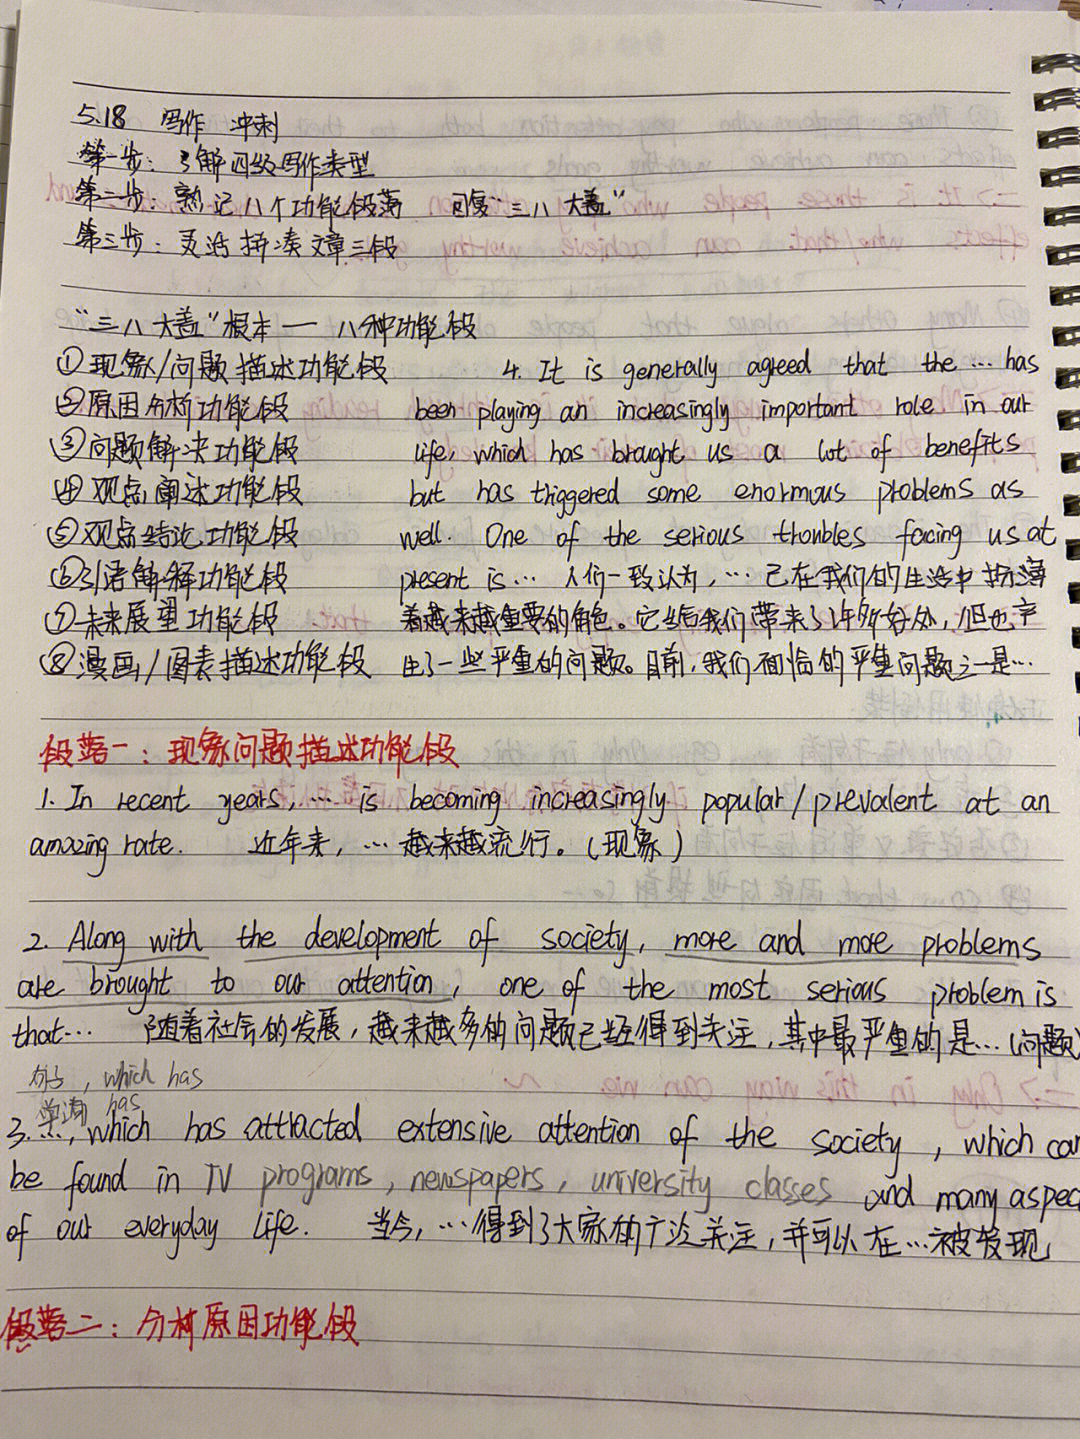 5.18 写作 冲刺
第一步：了解四级写作类型
第二步：熟记八个功能段落 回复“三八大盖”
第三步：灵活拼凑文章三段
“三八大盖”根本 — 八种功能段
①现象/问题描述功能段
②原因分析功能段
③问题解决功能段
④观点阐述功能段
⑤观点结论功能段
⑥引语解释功能段
⑦未来展望功能段
⑧漫画/图表描述功能段
4. It is generally agreed that the … has
been playing an increasingly important role in our
life, which has brought us a lot of benefits
but has triggered some enormous problems as
well. One of the serious troubles facing us at
present is… 人们一致认为，… 已在我们的生活中扮演
着越来越重要的角色。它给我们带来了许多好处，但也产
生了一些严重的问题。目前，我们面临的严重问题之一是…
段落一：现象问题描述功能段
1. In recent years, … is becoming increasingly popular/prevalent at an
amazing rate. 近年来，… 越来越流行。（现象）
2. Along with the development of society, more and more problems
are brought to our attention, one of the most serious problem is
that… 随着社会的发展，越来越多的问题已经得到关注，其中最严重的是…（问题）
句子, which has
单词 has
3. 点, which has attracted extensive attention of the society, which can
be found in TV programs, newspapers, university classes and many aspec
of our everyday life. 当今，…得到了大家的广泛关注，并可以在…被发现
段落二：分析原因功能段